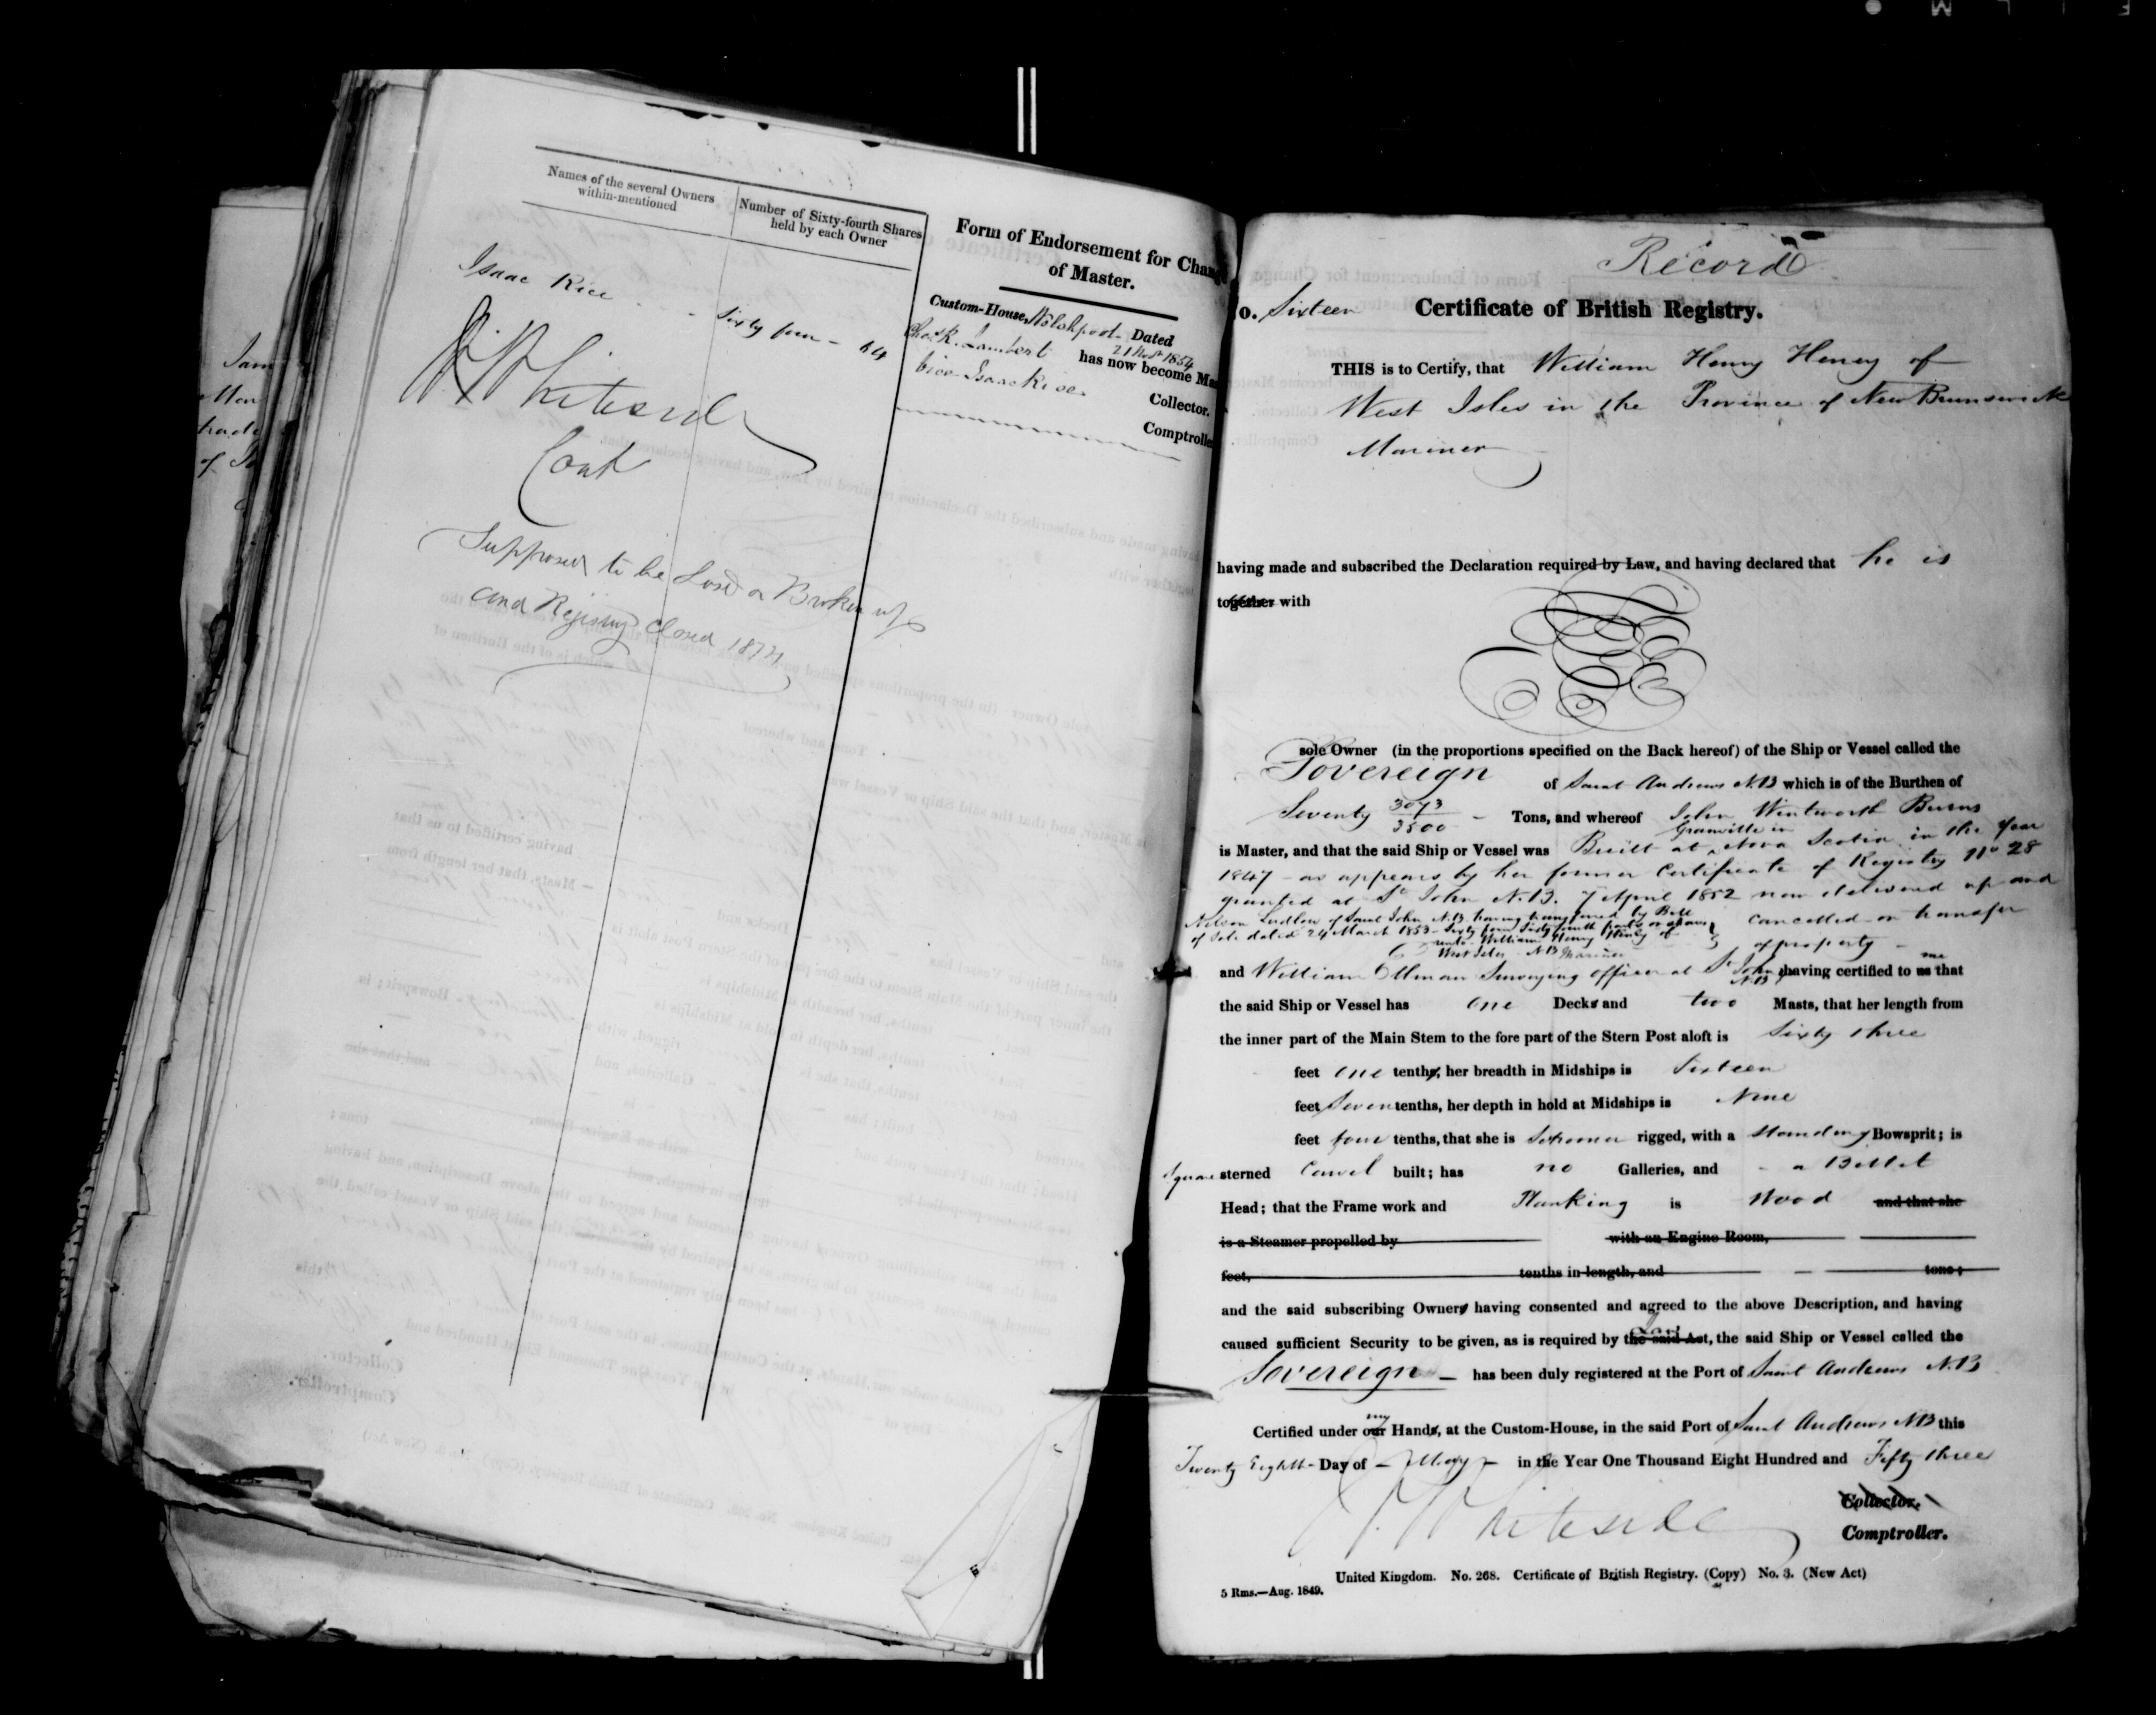 Names of the several Owners
within-mentioned
Number of Sixty-fourth Shares
held by each Owner
Isaac Rice
Sixty four - 64
Whiteside
Cont
Supposed to be Lost or Broken up
and Registry closed 1874
Form of Endorsement for Chang
of Master.
Custom-House, Welshpool Dated
21 Novr 1854
Chas. K. Lambert has now become Mas
vice Isaac Rice
Collector.
Comptrolle
Record
o. Sixteen Certificate of British Registry.
THIS is to Certify, that William Henry Heney of
West Isles in the Province of New Brunswick
Mariner
having made and subscribed the Declaration required by Law, and having declared that he is
together with
sole Owner (in the proportions specified on the Back hereof) of the Ship or Vessel called the
Sovereign of Saint Andrews N.B which is of the Burthen of
Seventy 3073/3500 - Tons, and whereof John Wentworth Burns
is Master, and that the said Ship or Vessel was Built at Granville in Nova Scotia in the Year
1847 - as appears by her former Certificate of Registry No 28
granted at St John N.B. 7 April 1852 now delivered up and
cancelled on transfer
of property -
Nelson Ludlow of Saint John N.B. having transferred by Bill
of Sale dated 24 March 1853 - Sixty four Sixty fourth parts or shares
unto William Henry Heney of
West Isles N B Mariner
and William Ellman Surveying officer at St John N.B having certified to us me that
the said Ship or Vessel has One Decks and two Masts, that her length from
the inner part of the Main Stem to the fore part of the Stern Post aloft is Sixty three
feet One tenths, her breadth in Midships is Sixteen
feet Seven tenths, her depth in hold at Midships is Nine
feet four tenths, that she is Schooner rigged, with a standing Bowsprit; is
Square sterned Carvel built; has no Galleries, and - a Billet
Head; that the Frame work and Planking is Wood and that she
is a Steamer propelled by with an Engine Room,
feet, tenths in length, and tons;
and the said subscribing Owners having consented and agreed to the above Description, and having
caused sufficient Security to be given, as is required by the said Act, the said Ship or Vessel called the
Sovereign - has been duly registered at the Port of Saint Andrews N.B
Certified under our my Hands, at the Custom-House, in the said Port of Saint Andrews N.B this
Twenty Eighth - Day of - May - in the Year One Thousand Eight Hundred and Fifty three
Whiteside
Collector.
Comptroller.
United Kingdom. No. 268. Certificate of British Registry. (Copy) No. 3. (New Act)
5 Rms.—Aug. 1849.